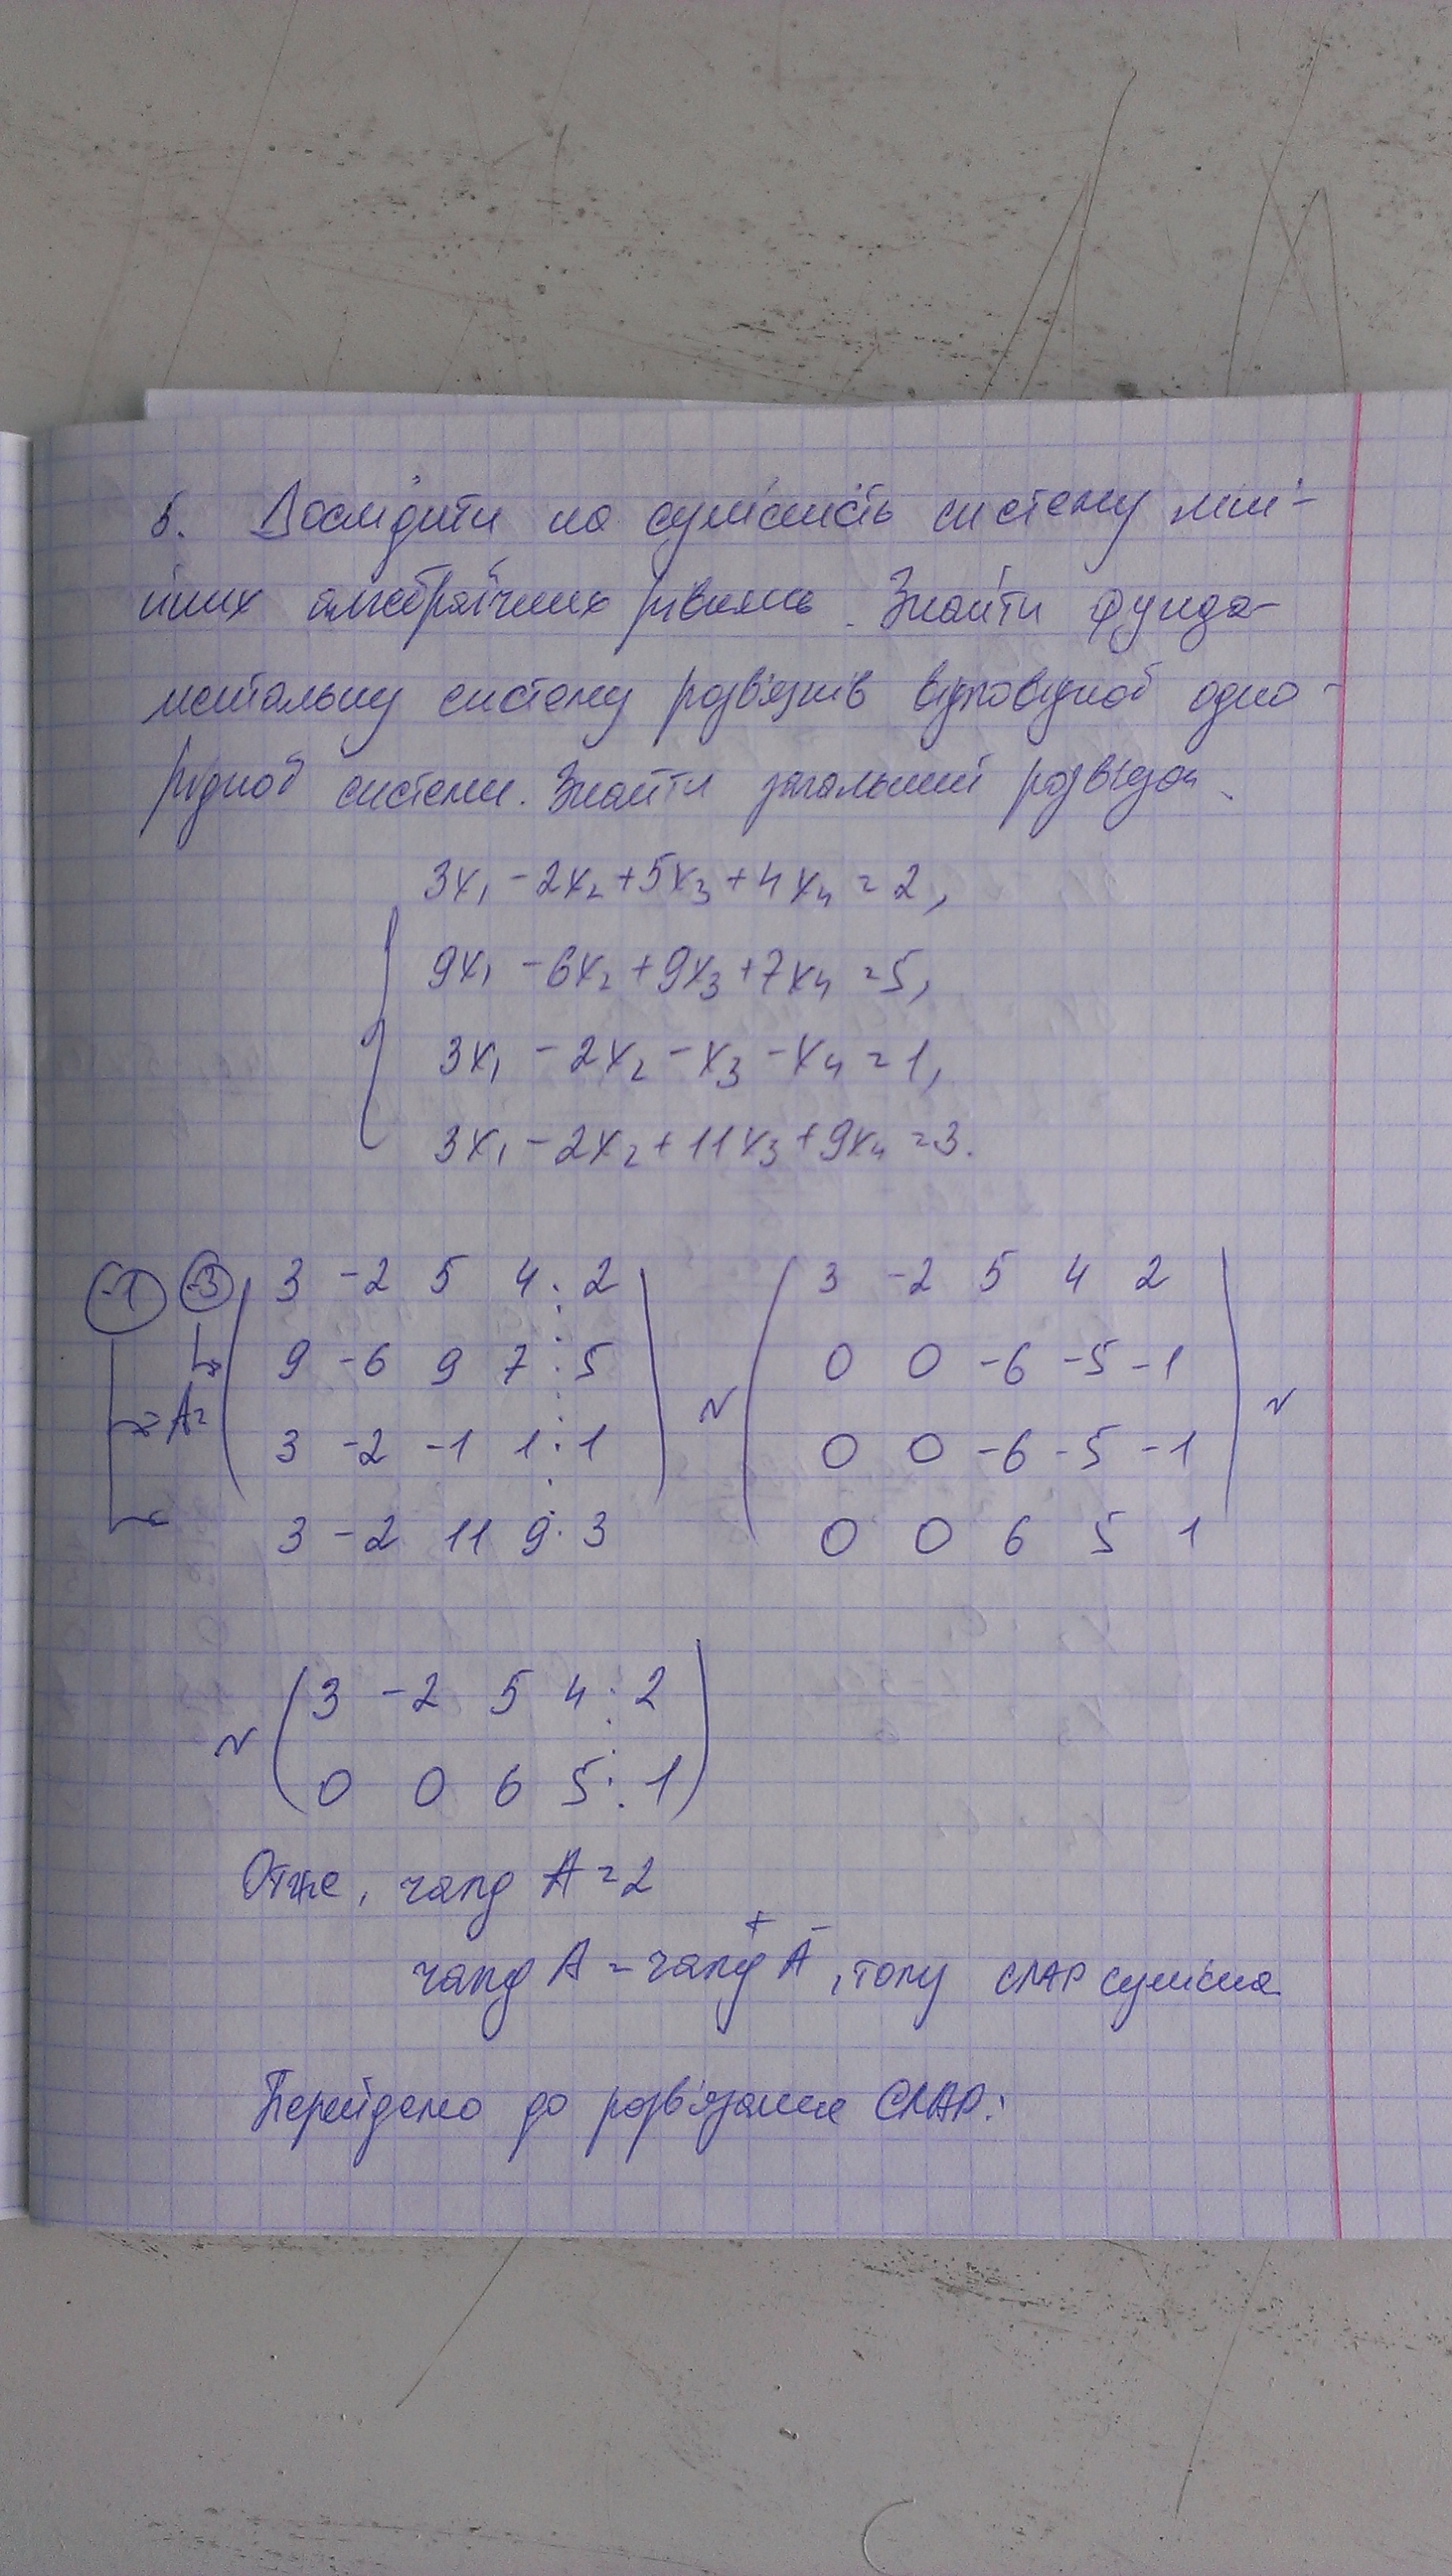 6. Дослідити на сумісність систему ліні-
йних алгебраїчних рівнянь. Знайти фунда-
ментальну систему розв'язків відповідної одно-
рідної системи. Знайти загальний розв'язок.
3x₁ - 2x₂ + 5x₃ + 4x₄ = 2,
9x₁ - 6x₂ + 9x₃ + 7x₄ = 5,
3x₁ - 2x₂ - x₃ - x₄ = 1,
3x₁ - 2x₂ + 11x₃ + 9x₄ = 3.
-1 -3 3 -2 5 4 : 2 3 -2 5 4 2
9 -6 9 7 : 5 0 0 -6 -5 -1
A = 3 -2 -1 1 : 1 ~ 0 0 -6 -5 -1 ~
3 -2 11 9 : 3 0 0 6 5 1
3 -2 5 4 : 2
~ 0 0 6 5 : 1
Отже, rang A = 2
rang A = rang A̅, тому СЛАР сумісна
Перейдемо до розв'язання СЛАР: